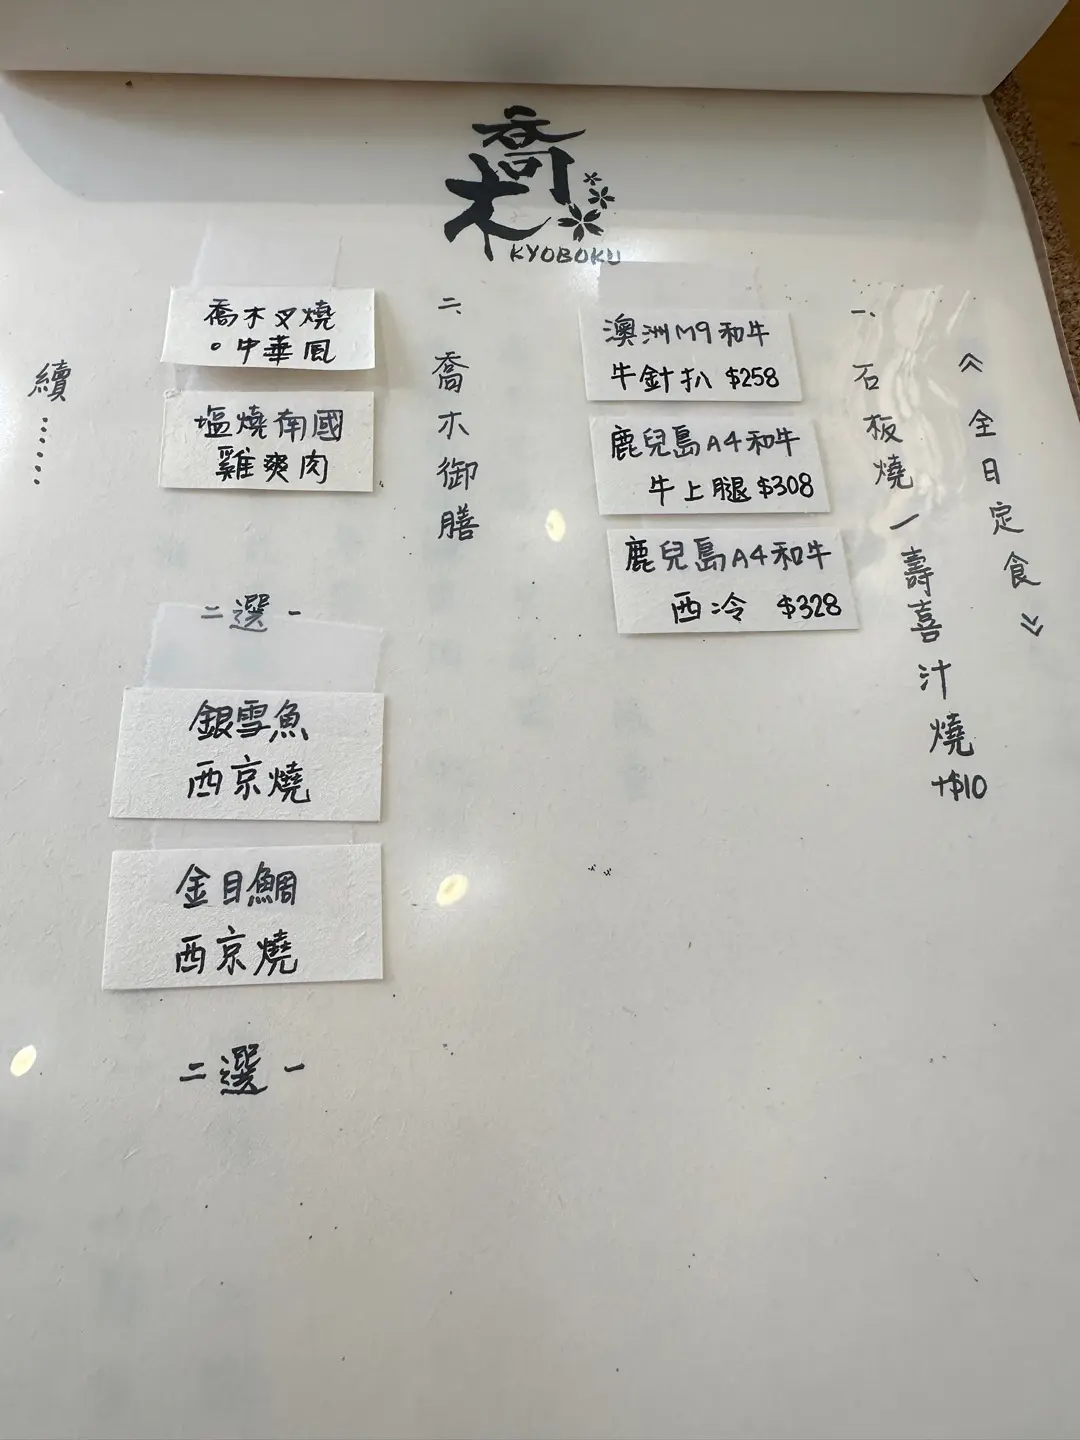 喬木
KYOBOKU
《全日定食》
一、石板燒/壽喜汁燒
+$10
澳洲M9和牛
牛針扒 $258
鹿兒島A4和牛
牛上腿 $308
鹿兒島A4和牛
西冷 $328
二、喬木御膳
喬木叉燒
。中華風
塩燒南國
雞爽肉
二選一
銀雪魚
西京燒
金目鯛
西京燒
二選一
續……